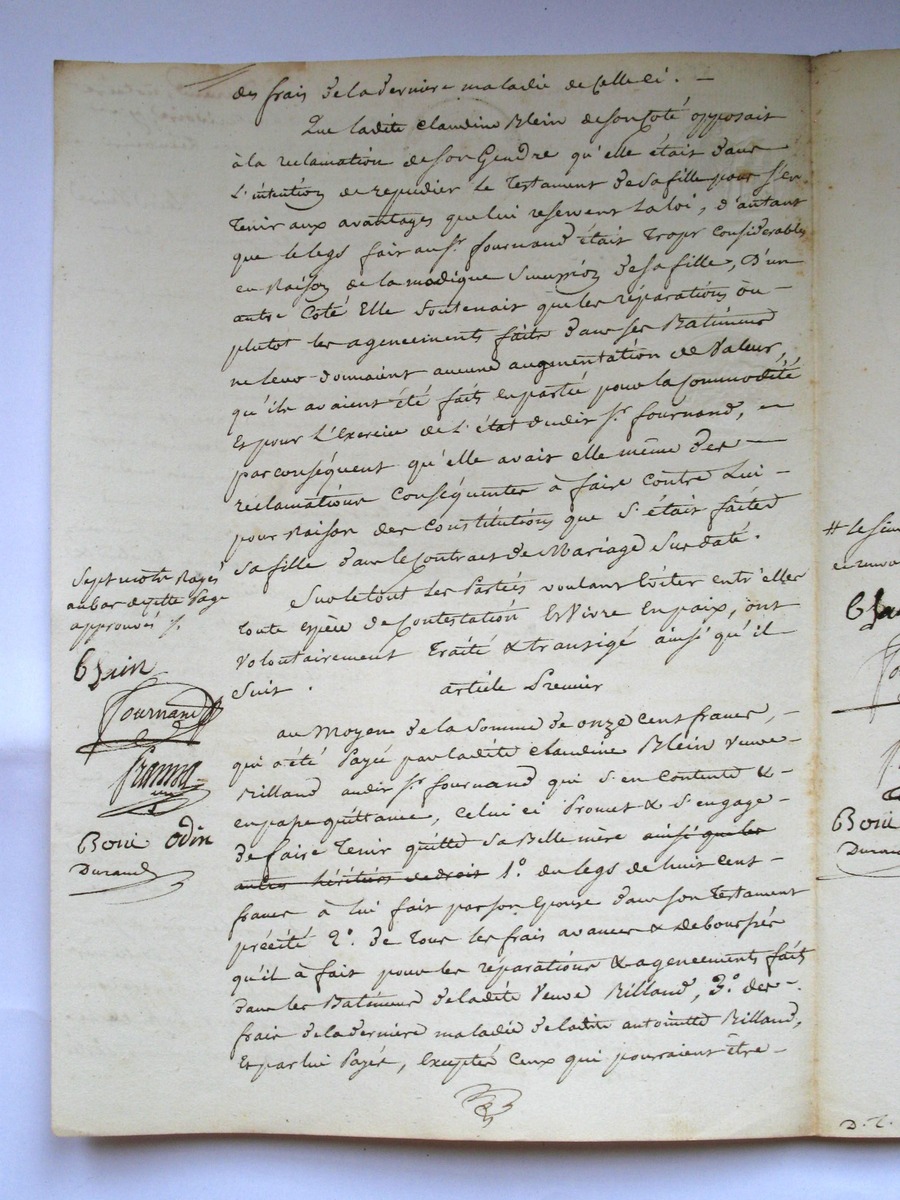 des frais de la derniere maladie de Celle ci. –
Que ladite Claudine Blein de son Coté opposait
à la reclamation de son Gendre qu'elle était dans
L'intention de repudier le Testament de sa fille pour s'en
Tenir aux avantages que lui reservent La loi, d'autant
que le legs fait au Sr. fournand était Trops Considerables
en Raison de la modique Succession de sa fille, D'un
autre Coté Elle Soutenait que les réparations ou –
plutot les agencements faits dans ses Batiments
ne leur donnaient aucune augmentation de Valeur,
qu'ils avaient été faits en partie pour la Commodité
Et pour L'Exercice de L'état dudit Sr. fournand, –
par conséquent qu'elle avait elle même des –
réclamations Conséquentes à faire contre Lui –
pour Raison des Constitutions que S'était faites
sa fille dans le Contract de Mariage Susdaté.
Sur le tout Les Parties voulant Eviter entr'elles
Toute espèce de Contestation Et Vivre En paix, ont
Volontairement Traité & transigé ainsi qu'il
Suit. article Premier
au Moyen de la Somme de onze cent francs, –
qui a été Payée par ladite Claudine Blein Veuve –
Rilland audit Sr. fournand qui S'en Contente & –
en passe quittance, Celui ci Promet & S'engage –
De faire Tenir quitte Sa Belle mère ainsi que les
autres héritiers de droit 1°. du legs de huit cent –
francs à lui fait par son Epouse dans son Testament
précité 2°. De Tous les frais avances & deboursés
qu'il à fait pour les réparations & agencements faits
Dans les Batiments de ladite Veuve Rilland, 3°. des –
frais de la derniere maladie de ladite antoinette Rilland,
Et par lui Payés, Exceptés Ceux qui pourraient être –
Sept mots Rayés
au bas de cette Page
approuvés /.
Fournand
Boüi Odin
Durand
Boüi
Durand